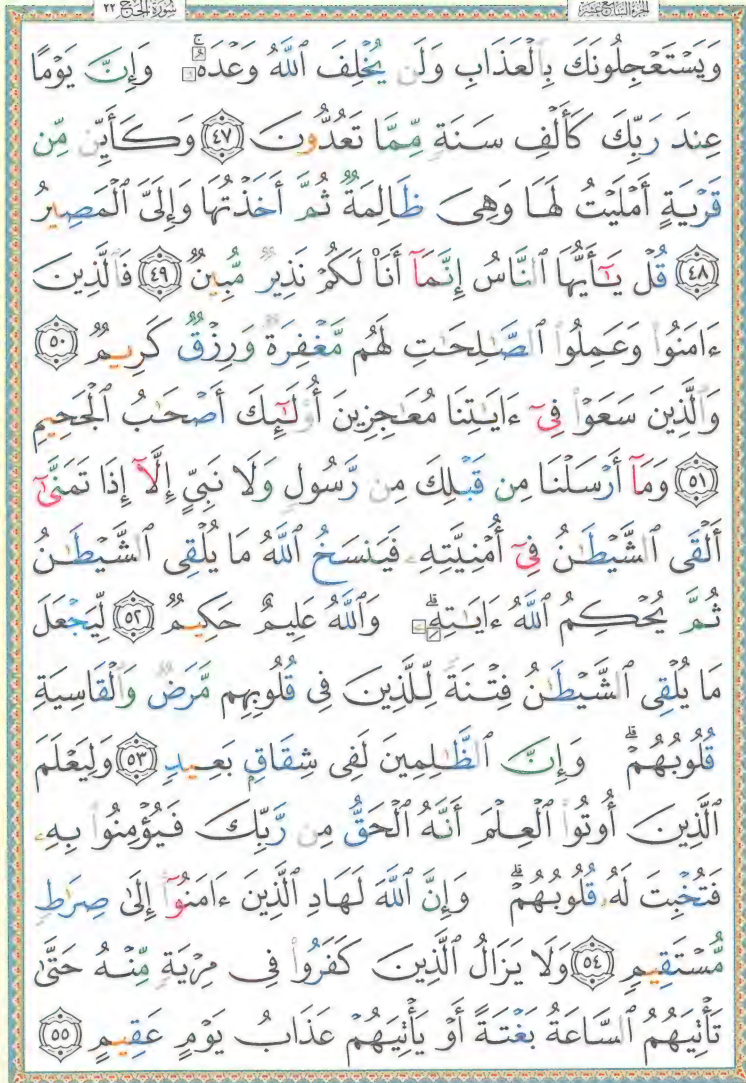 سُورَةُ الحَجّ ٢٢
الجزء السابع عشر
وَيَسْتَعْجِلُونَكَ بِٱلْعَذَابِ وَلَن يُخْلِفَ ٱللَّهُ وَعْدَهُۥۚ وَإِنَّ يَوْمًا
عِندَ رَبِّكَ كَأَلْفِ سَنَةٍ مِّمَّا تَعُدُّونَ ٤٧ وَكَأَيِّن مِّن
قَرْيَةٍ أَمْلَيْتُ لَهَا وَهِىَ ظَالِمَةٌ ثُمَّ أَخَذْتُهَا وَإِلَىَّ ٱلْمَصِيرُ
٤٨ قُلْ يَـٰٓأَيُّهَا ٱلنَّاسُ إِنَّمَآ أَنَا۠ لَكُمْ نَذِيرٌ مُّبِينٌ ٤٩ فَٱلَّذِينَ
ءَامَنُوا۟ وَعَمِلُوا۟ ٱلصَّـٰلِحَـٰتِ لَهُم مَّغْفِرَةٌ وَرِزْقٌ كَرِيمٌ ٥٠
وَٱلَّذِينَ سَعَوْا۟ فِىٓ ءَايَـٰتِنَا مُعَـٰجِزِينَ أُو۟لَـٰٓئِكَ أَصْحَـٰبُ ٱلْجَحِيمِ
٥١ وَمَآ أَرْسَلْنَا مِن قَبْلِكَ مِن رَّسُولٍ وَلَا نَبِىٍّ إِلَّآ إِذَا تَمَنَّىٰٓ
أَلْقَى ٱلشَّيْطَـٰنُ فِىٓ أُمْنِيَّتِهِۦ فَيَنسَخُ ٱللَّهُ مَا يُلْقِى ٱلشَّيْطَـٰنُ
ثُمَّ يُحْكِمُ ٱللَّهُ ءَايَـٰتِهِۦۗ وَٱللَّهُ عَلِيمٌ حَكِيمٌ ٥٢ لِّيَجْعَلَ
مَا يُلْقِى ٱلشَّيْطَـٰنُ فِتْنَةً لِّلَّذِينَ فِى قُلُوبِهِم مَّرَضٌ وَٱلْقَاسِيَةِ
قُلُوبُهُمْۗ وَإِنَّ ٱلظَّـٰلِمِينَ لَفِى شِقَاقٍ بَعِيدٍ ٥٣ وَلِيَعْلَمَ
ٱلَّذِينَ أُوتُوا۟ ٱلْعِلْمَ أَنَّهُ ٱلْحَقُّ مِن رَّبِّكَ فَيُؤْمِنُوا۟ بِهِۦ
فَتُخْبِتَ لَهُۥ قُلُوبُهُمْۗ وَإِنَّ ٱللَّهَ لَهَادِ ٱلَّذِينَ ءَامَنُوٓا۟ إِلَىٰ صِرَٰطٍ
مُّسْتَقِيمٍ ٥٤ وَلَا يَزَالُ ٱلَّذِينَ كَفَرُوا۟ فِى مِرْيَةٍ مِّنْهُ حَتَّىٰ
تَأْتِيَهُمُ ٱلسَّاعَةُ بَغْتَةً أَوْ يَأْتِيَهُمْ عَذَابُ يَوْمٍ عَقِيمٍ ٥٥